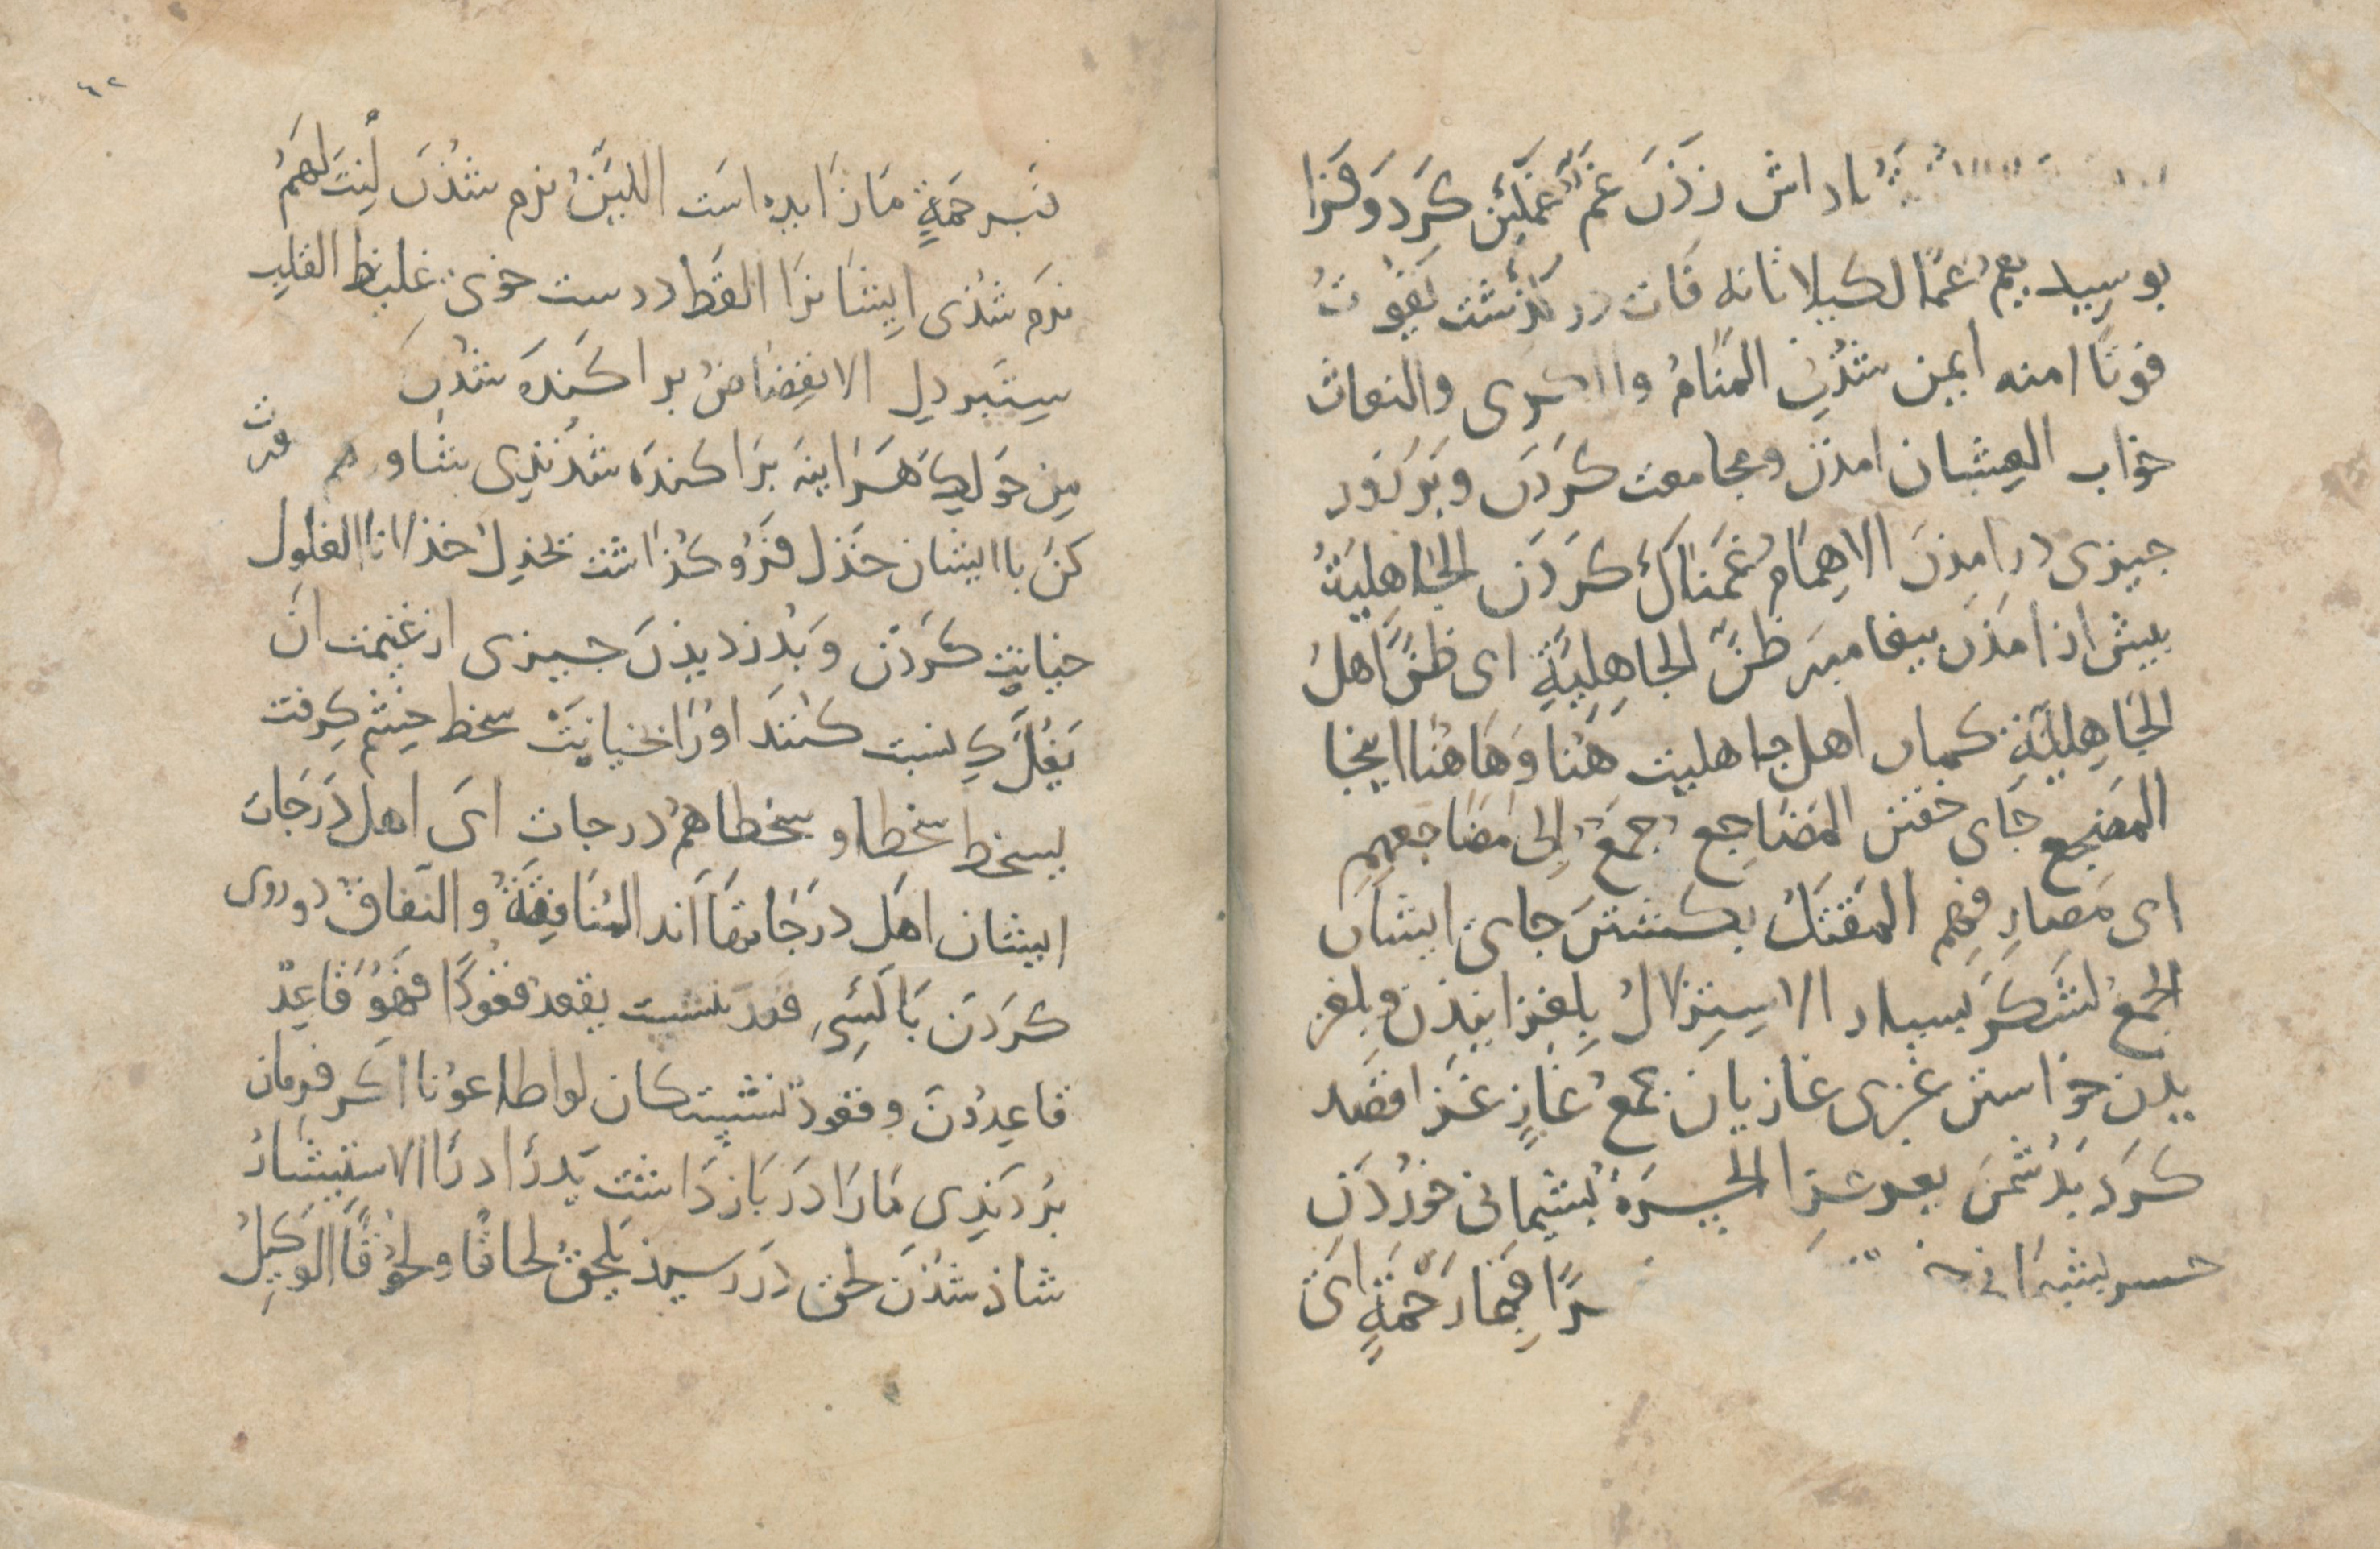 باداش زدن غم غمگین کرد و فرا
بوسید یغم غما لکیلا تا نه فات در گذشت یفوت
فوتا امنه ایمن شدن المنام والکری والنعاث
خواب الغشیان امدن و مجامعت کردن و بر زور
جیزی در امدن الاهمام غمناک کردن الجاهلیة
بیش از امدن بیغامبر ظن الجاهلیة ای ظن اهل
الجاهلیة کمان اهل جاهلیت هنا و هاهنا اینجا
المضجع جای خفتن المضاجع جمع الی مضاجعهم
ای مصارعهم المقتل بکشتن جای ایشان
الجمع لشکر بسیار الاستزلال بلغزانیدن و بلغز
یدن خواستن غزی غازیان جمع غاز غزا قصد
کرد بدشمن یغزو غزوا الحسرة بشیمانی خوردن
حسر بشیمانی
را فبما رحمة ای
فبرحمة ما زایده است اللین نرم شدن لنت لهم
نرم شدی ایشانرا الفظ درست خوی غلیظ القلب
ستبر دل الانفضاض براکنده شدن
من حولک هراینه براکنده شدندی شاورهم مشورت
کن با ایشان خذل فروگذاشت یخذل خذلانا الغلول
خیانت کردن و بدزدیدن جیزی از غنیمت ان
یغل کی نسبت کنند اورا بخیانت سخط خشم گرفت
یسخط سخطا و سخطا هم درجات ای اهل درجات
ایشان اهل درجاتها اند المنافقة والنفاق دوروی
کردن با کسی قعد نشست یقعد قعودا فهو قاعد
قاعدون و قعود نشستکان لو اطاعونا اکر فرمان
بردندی مارا درا بازداشت یدرا درا الاستبشار
شاذ شدن لحق در رسید یلحق لحاقا و لحوقا الوکیل